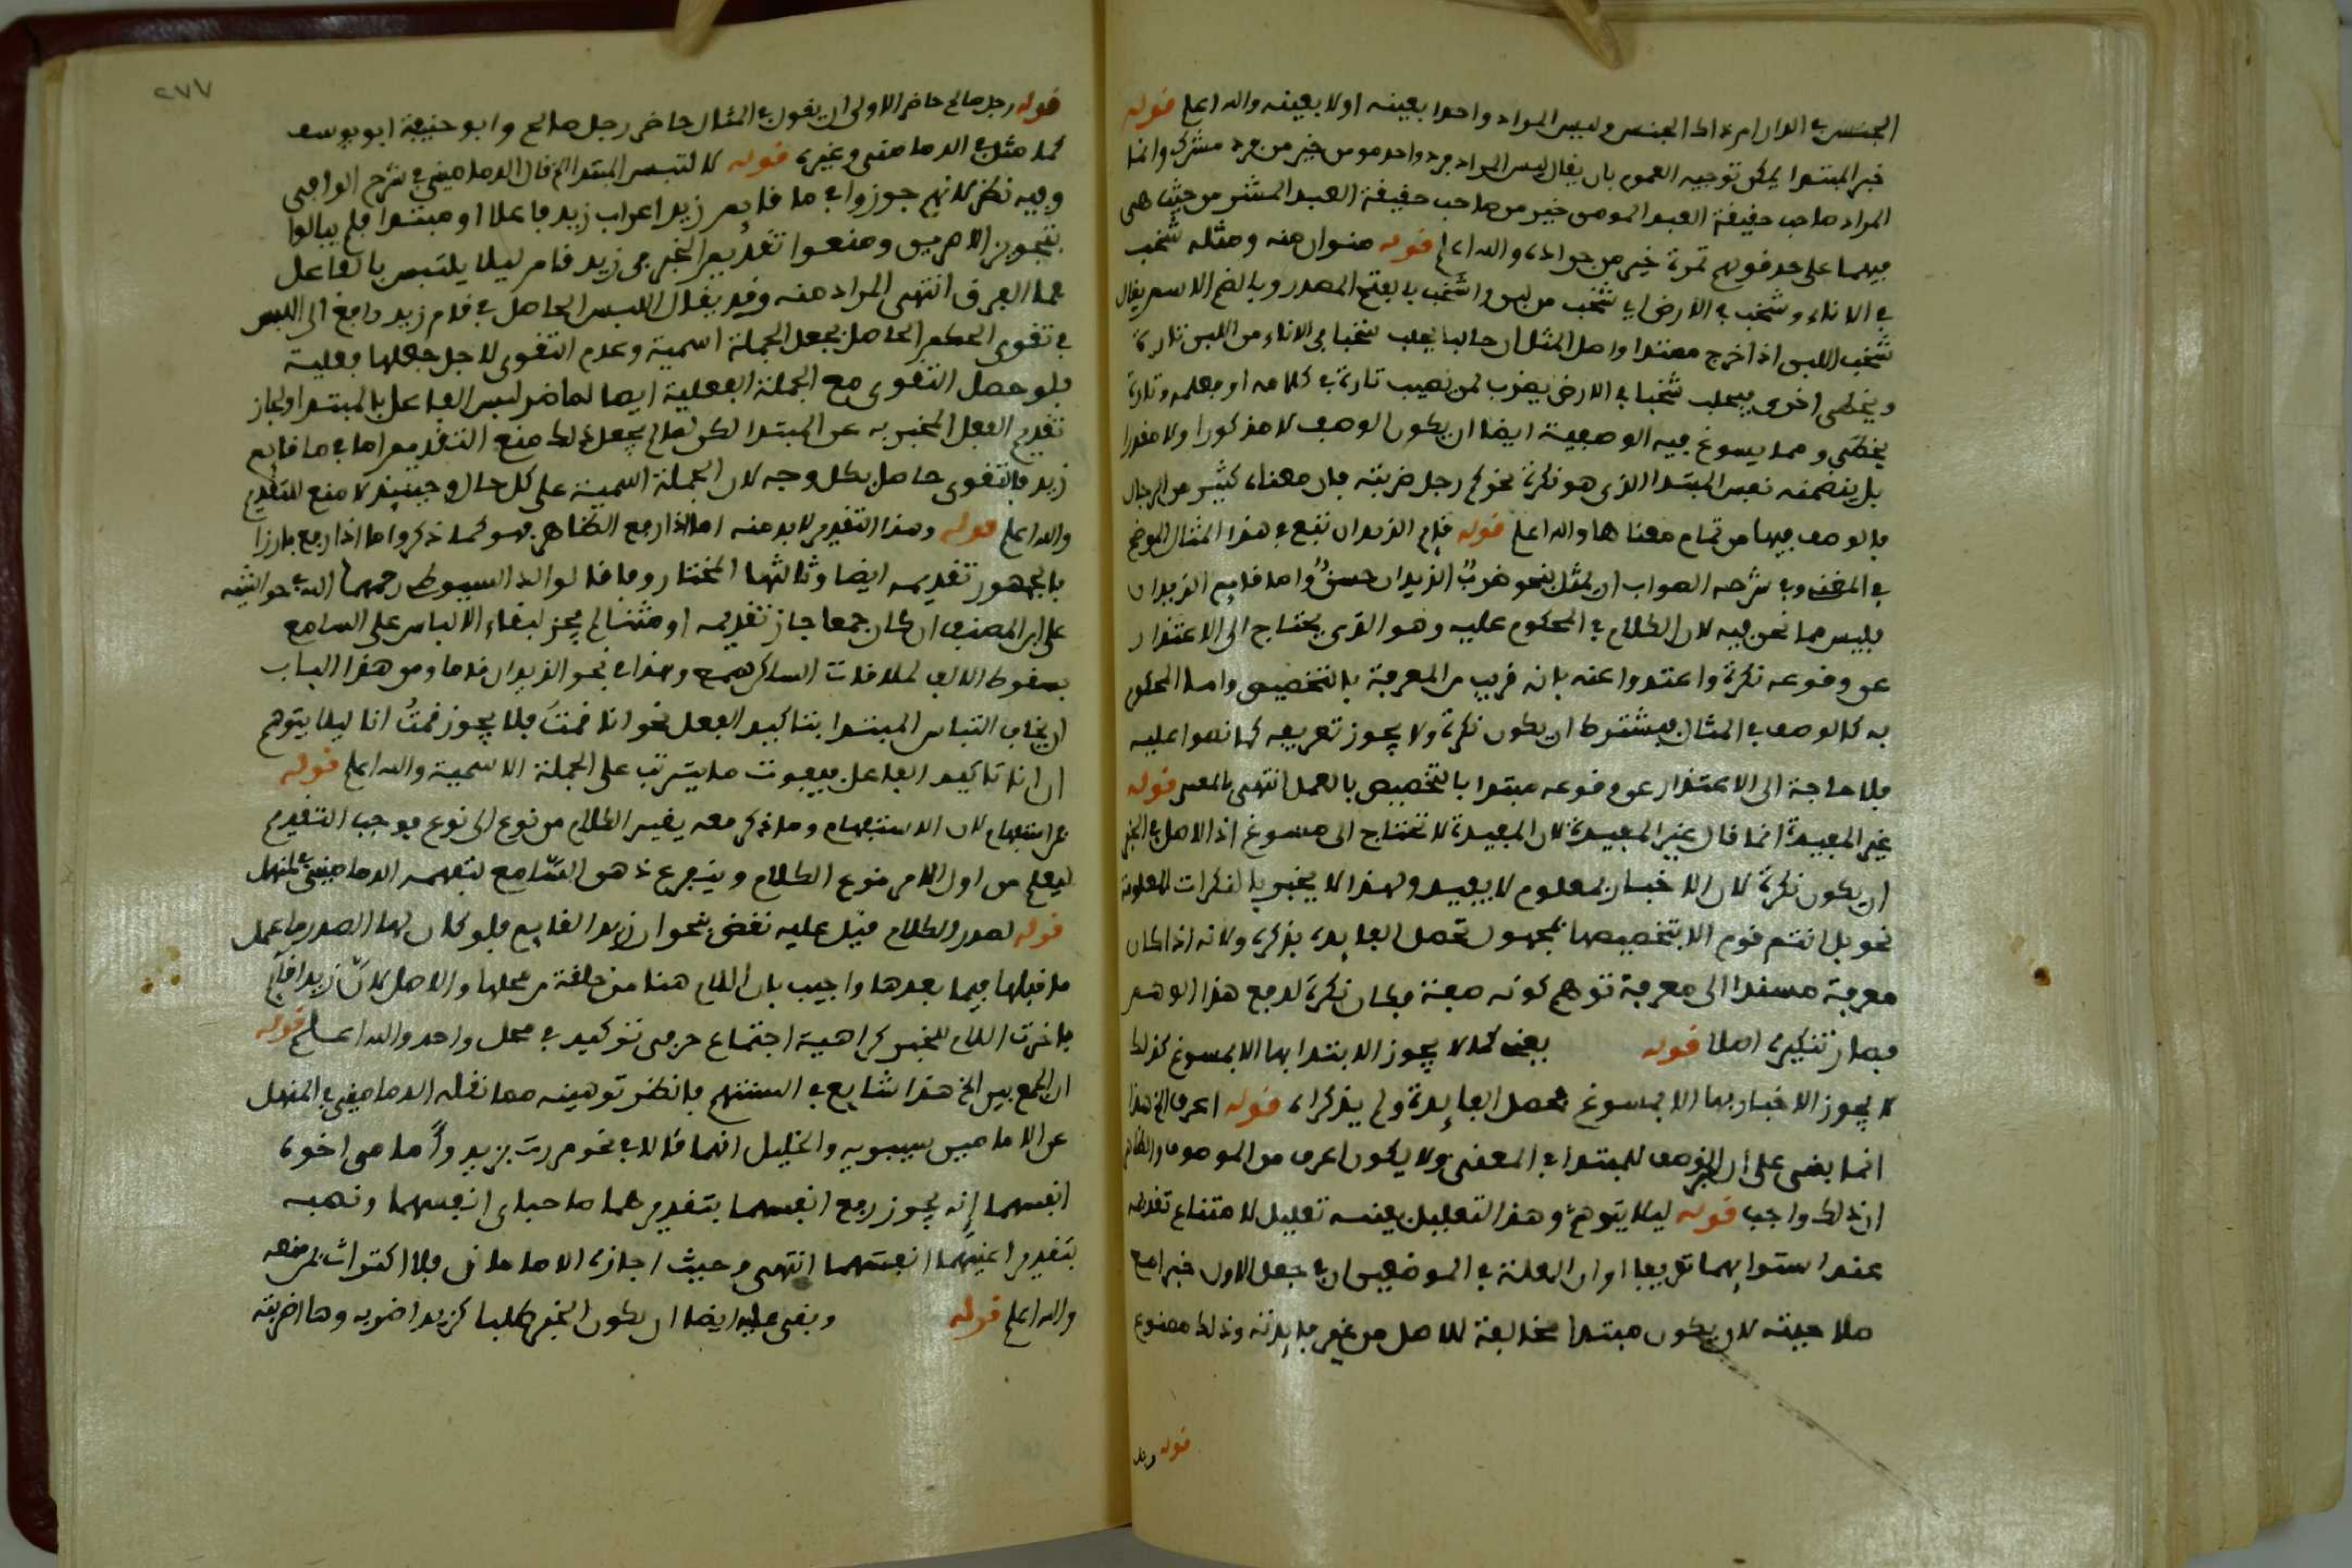 الجنس في الدار امراة اط الجنس وليس المراد واحدا بعينه اولا بعينه والله اعلم قوله
خبر المبتدا يمكن توجيه العموم بان يقال ليس المراد فرد واحد مومن خير من فرد مشرك وانما
المراد صاحب حقيقة العبد المومن خير من صاحب حقيقة العبد المشرك من حيث هي
فيهما على حد قولهم تمرة خير من جرادة والله اعلم قوله منوان منه ومثله شخب
في الاناء وشخب في الارض اي شخب من لبن والشخب بالفتح المصدر وبالضم الاسم يقال
شخب اللبن اذا خرج ممتدا واصل المثل ان حالبا يحلب شخبا في الاناء من اللبن تارة
ويخطى اخرى فيحلب شخبا في الارض يضرب لمن يصيب تارة في كلامه او فعله وتارة
يخطى ومما يسوغ فيه الوصفية ايضا ان يكون الوصف لا مذكورا ولا مقدرا
بل يتضمنه نفس المبتدا الذي هو نكرة نحو كم رجل ضربته فان معناه كثير من الرجال
فالوصف فيها من تمام معناها والله اعلم قوله قايم الزيدان تبع في هذا المثال الموضح
في المغنى وفي شرحه الصواب ان يمثل بنحو ضرب الزيدان حسن واما قايم الزيدان
فليس مما نحن فيه لان الكلام في المحكوم عليه وهو الذي يحتاج الى الاعتذار
عن وقوعه نكرة واعتذروا عنه بانه قريب من المعرفة بالتخصيص واما المحكوم
به كالوصف في المثال فيشترط ان يكون نكرة ولا يجوز تعريفه كما نصوا عليه
فلا حاجة الى الاعتذار عن وقوعه مبتدا بالتخصيص بالعمل انتهى بالمعنى قوله
غير المفيدة انما قال غير المفيدة لان المفيدة لا تحتاج الى مسوغ اذ الاصل في الخبر
ان يكون نكرة لان الاخبار بمعلوم لا يفيد ولهذا لا يخبر بالنكرات المعلومة
نحو بل انتم قوم الا بتخصيصها بمجهول تحصل الفايدة بذكره ولانه اذا كان
معرفة مسندا الى معرفة توهم كونه صفة فكان نكرة لدفع هذا الوهم
فصار تنكيره اصلا قوله يعنى كما لا يجوز الابتدا بها الا بمسوغ كذلك
لا يجوز الاخبار بها الا بمسوغ محصل الفايدة ولم يذكراه قوله اعرف الخ هذا
انما بنى على ان الخبر وصف للمبتدا في المعنى ولا يكون اعرف من الموصوف والظاهر
ان ذلك واجب قوله ليلا يتوهم وهذا التعليل بعينه تعليل لامتناع تقديمه
عند استوايهما تعريفا او ان العلة في الموضعين ان في جعل الاول خبرا مع
صلاحيته لان يكون مبتدا مخالفة للاصل من غير فايدته وذلك ممنوع
قوله وبد
٢٧٧
قوله رجل صالح حاضر الاولى ان يقول في المثال حاضر رجل صالح وابو حنيفة ابو يوسف
كما مثل به الدمامينى وغيره قوله لالتبس المبتدا الخ قال الدمامينى في شرح الوافى
وفيه نظر لانهم جوزوا في ما قايم زيد اعراب زيد فاعلا او مبتدا فلم يبالوا
بتجويز الامرين ومنعوا تقديم الخبر في زيد قام ليلا يلتبس بالفاعل
فما الفرق انتهى المراد منه وقد يقال اللبس الحاصل في قام زيد راجع الى اللبس
في تقوى الحكم الحاصل بجعل الجملة اسمية وعدم التقوى لاجل جعلها فعلية
فلو حصل التقوى مع الجملة الفعلية ايضا لما ضر لبس الفاعل بالمبتدا ولجاز
تقديم الفعل المخبر به عن المبتدا لكن لما لم يجعل ذلك منع التقديم اما في ما قايم
زيد فالتقوى حاصل بكل وجه لان الجملة اسمية على كل حال وحينيذ لا منع للتقديم
والله اعلم قوله وهذا التقديم لا بد منه اما اذا رفع الظاهر فهو كما ذكروا ما اذا رفع بارزا
فالجمهور تقديمه ايضا وثالثها المختار وفاقا لوالد السيوطى رحمهما الله في حواشيه
على ابن المصنف ان كان جمعا جاز تقديمه او مثنا لم يجز لبقاء الالباس على السامع
بسقوط الالف لملاقات الساكن وهذا في نحو الزيدان قاما ومن هذا الباب
ان يخاف التباس المبتدا بتاكيد الفعل نحو انا قمت فلا يجوز قمت انا ليلا يتوهم
ان انا تاكيد الفاعل فيفوت ما يترتب على الجملة الاسمية والله اعلم قوله
استفهام لان الاستفهام وما ذكر معه يغير الكلام من نوع الى نوع فوجب التقديم
ليعلم من اول الامر نوع الكلام ويتفرغ ذهن السامع لتفهمه الدمامينى في المنهل
قوله لصدر الكلام قيل عليه نقض بنحو ان زيدا لقايم فلو كان لها الصدر ما عمل
ما قبلها فيما بعدها واجيب بان اللام هنا مزحلقة من محلها والاصل لان زيدا قايم
فاخرت اللام للخبر كراهية اجتماع حرفى توكيد في محل واحد والله اعلم قوله
ان الجمع بين الخ هذا شايع في السنتهم فانظر توهينه مما نقله الدمامينى في المنهل
عن الامامين سيبويه والخليل انهما قالا في نحو مررت بزيد واتانى اخوه
انفسهما انه يجوز رفع انفسهما بتقدير هما صاحباى انفسهما ونصبه
بتقدير اعنيهما انفسهما انتهى وحيث اجازه الامامان فلا اكتراث لمن منعه
والله اعلم قوله وبقى عليه ايضا ان يكون الخبر طلبا كزيدا ضربه وها اضربته